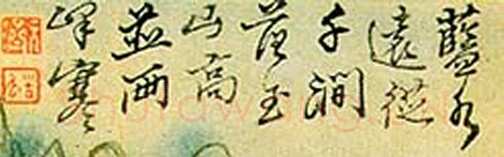 藍水
遠從
千澗
落玉
山高
並兩
峰寒